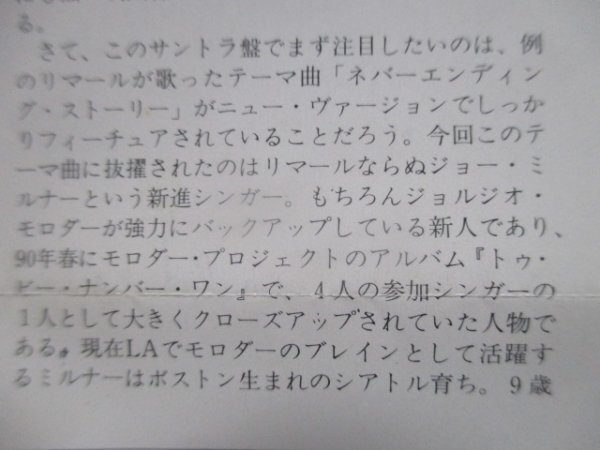 る。
さて、このサントラ盤でまず注目したいのは、例
のリマールが歌ったテーマ曲「ネバーエンディン
グ・ストーリー」がニュー・ヴァージョンでしっか
りフィーチュアされていることだろう。今回このテ
ーマ曲に抜擢されたのはリマールならぬジョー・ミ
ルナーという新進シンガー。もちろんジョルジオ・
モロダーが強力にバックアップしている新人であり、
90年春にモロダー・プロジェクトのアルバム『トゥ・
ビー・ナンバー・ワン』で、4人の参加シンガーの
1人として大きくクローズアップされていた人物で
ある。現在LAでモロダーのブレインとして活躍す
るミルナーはボストン生まれのシアトル育ち。9歳